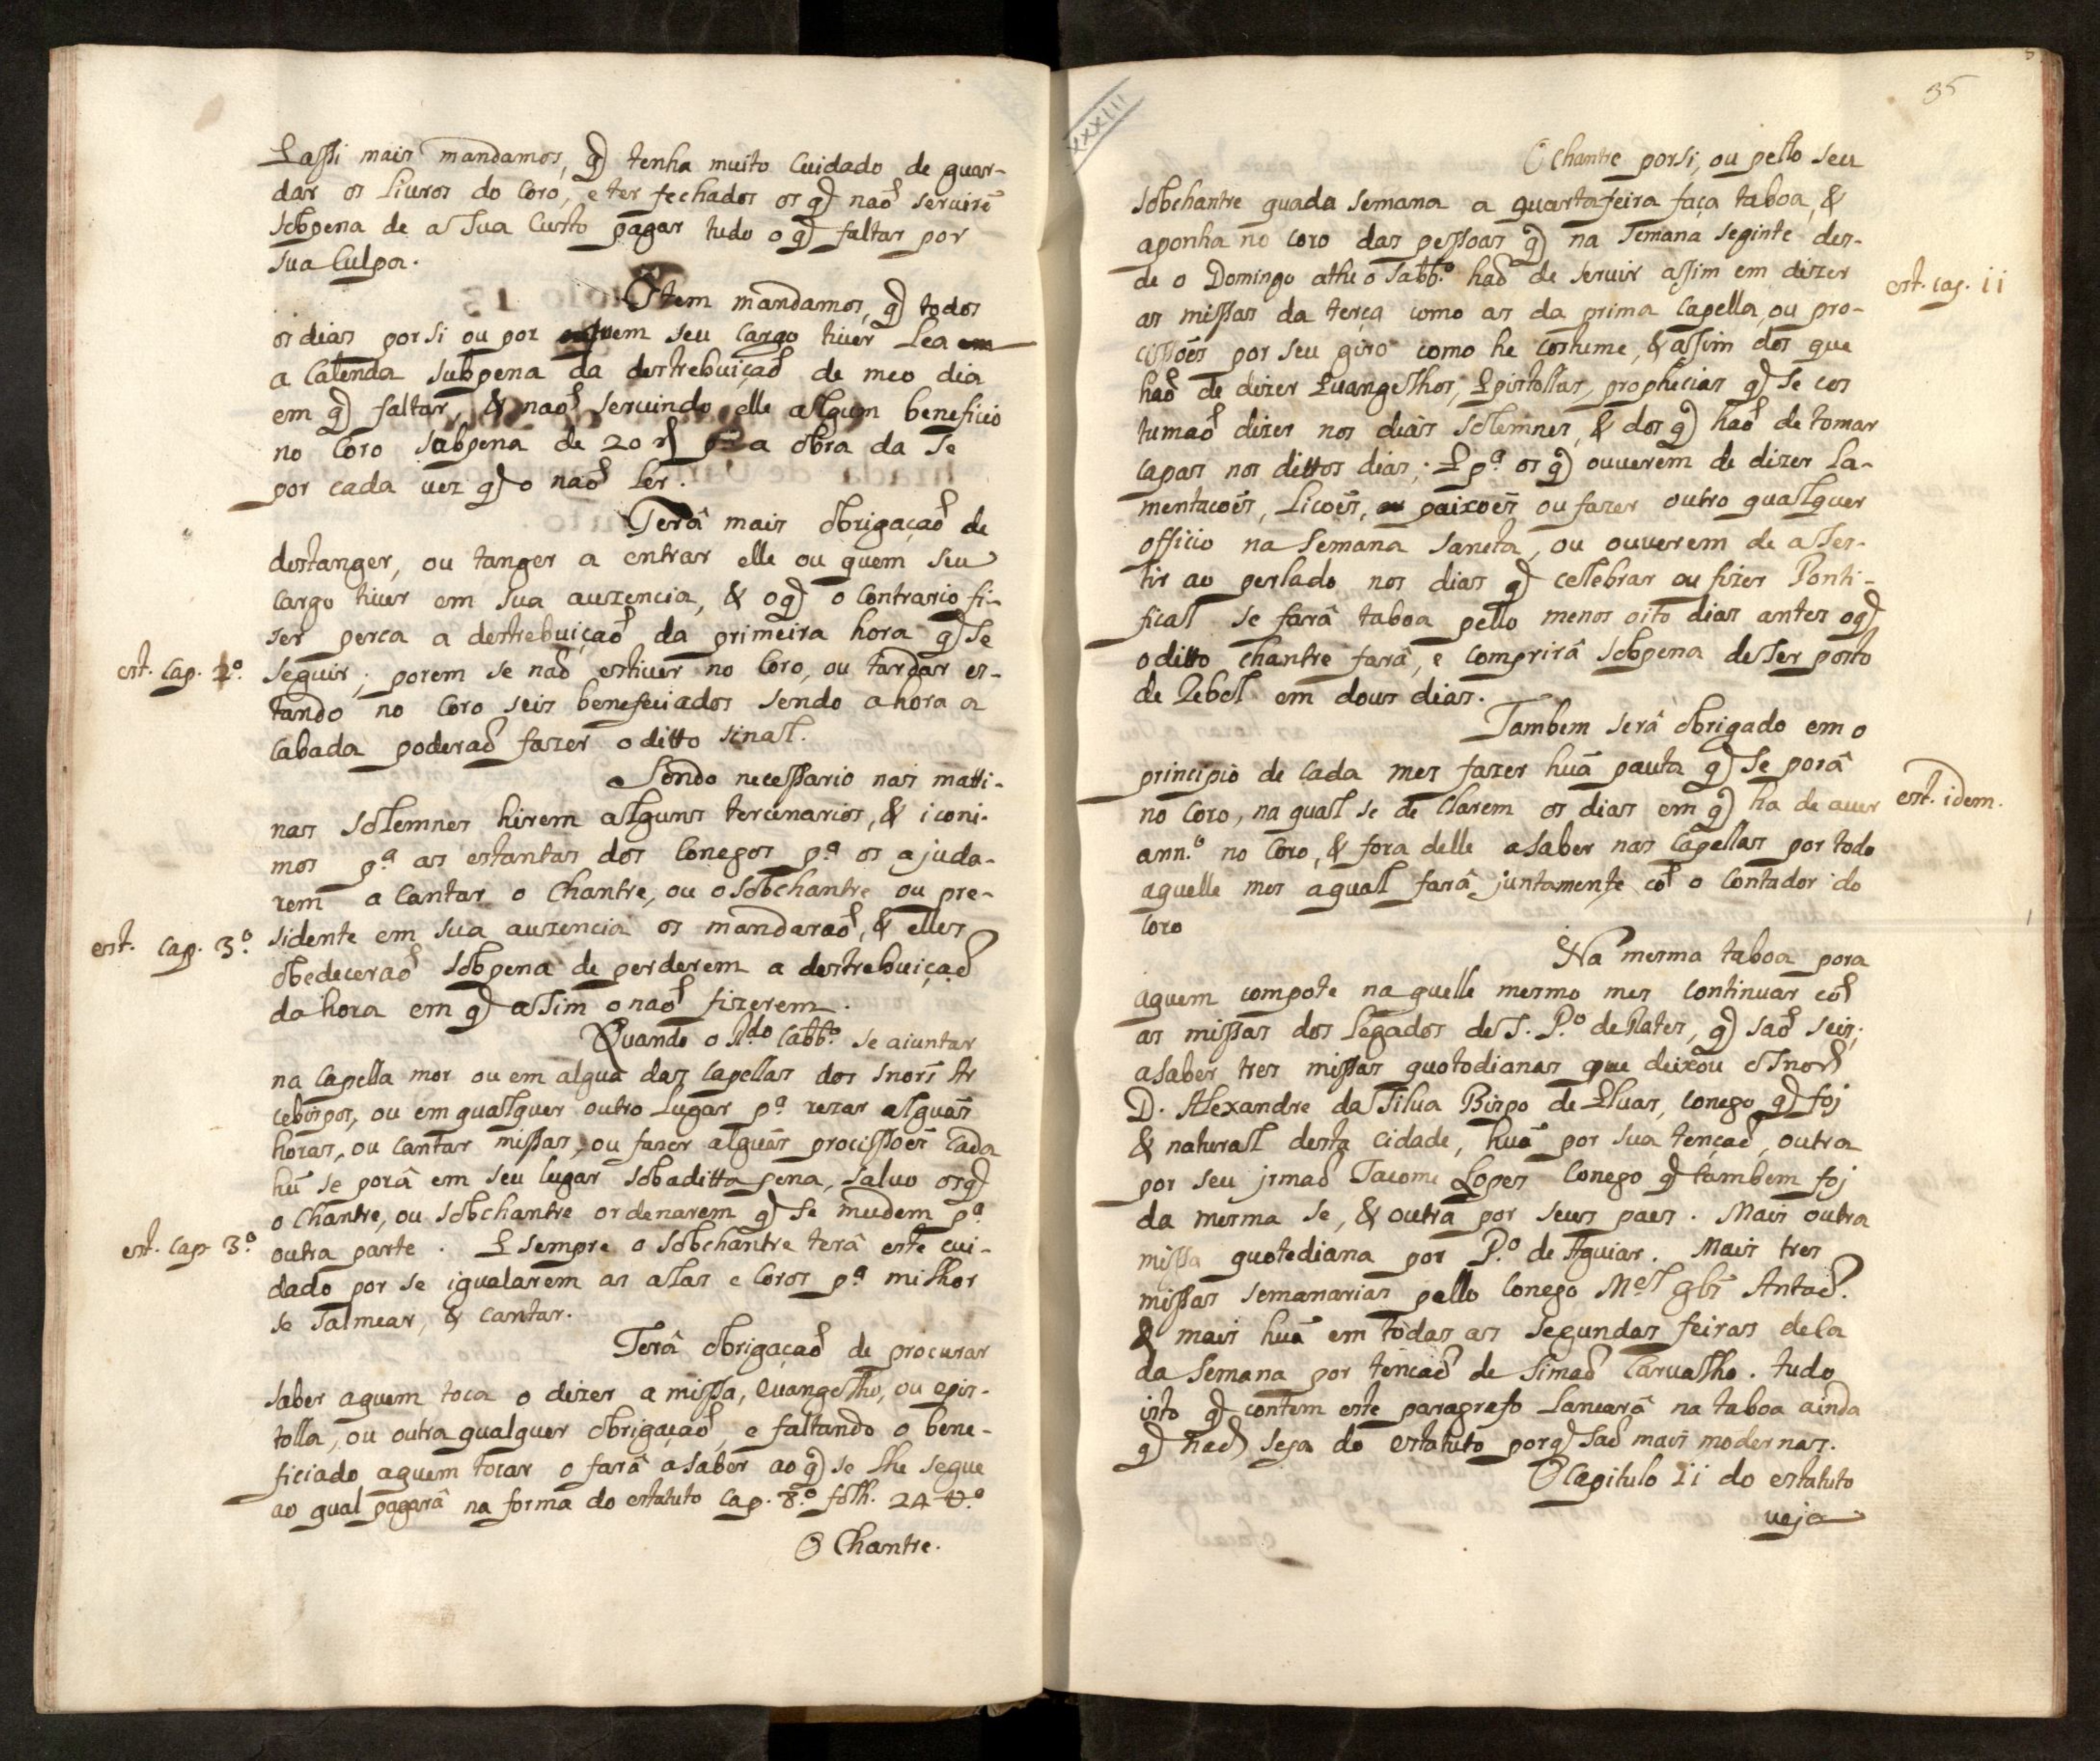 E assi mais mandamos, q̃ tenha muito Cuidado de guar-
dar os Liuros do Coro, e ter fechados os q̃ naõ seruirẽ
sobpena de a sua Custo pagar tudo o q̃ faltar por
sua Culpa.
Item mandamos, q̃ todos
os dias por si ou por quem seu Cargo tiuer Lea
a Calenda subpena da destrebuiçaõ de meo dia
em q̃ faltar, & naõ seruindo elle algum beneficio
no Coro sabpena de 20 rs̃ pª a obra da Se
por cada uez q̃ o naõ Ler.
Terâ mais obrigaçaõ de
destanger, ou tanger a entrar elle ou quem seu
Cargo tiuer em sua auzencia, & o q̃ o Contrario fi-
ser perca a destrebuiçaõ da primeira hora q̃ se
est. Cap. 2º.
seguir; porem se naõ estiuer no Coro, ou tardar es-
tando no Coro seis benefeciados sendo a hora a
Cabada poderaõ fazer o ditto sinal.
Sendo necessario nas matti-
nas solemnes hirem alguns tercenarios, & iconi-
mos pª as estantas dos Conegos pª os ajuda-
rem a Cantar o Chantre, ou o sobchantre ou pre-
est. Cap. 3º.
sidente em sua auzencia os mandaraõ, & elles
obedeceraõ sobpena de perderem a destrebuiçaõ
da hora em q̃ assim o naõ fizerem.
Quando o R.do Cabb.º se aiuntar
na Capella mor ou em algũa das Capellas dos Snor̃s Ar
cebispos, ou em qualquer outro Lugar pª rezar algũas
horas, ou Cantar missas, ou fazer algũas procissoẽs Cada
hũ se porâ em seu lugar sob a ditta pena, saluo os q̃
o Chantre, ou sobchantre ordenarem q̃ se mudem pª
est. Cap 3º.
outra parte. E sempre o sobchantre terâ este cui-
dado por se igualarem as alas e Coros pª milhor
se salmear, & Cantar.
Terâ obrigaçaõ de procurar
saber aquem toca o dizer a missa, Euangelho, ou epis-
tolla, ou outra qualquer obrigaçaõ, e faltando o bene-
ficiado aquem tocar o farâ a saber ao q̃ se lhe segue
ao qual pagarâ na forma do estatuto Cap. 8.º folh. 24 v.º
O Chantre.
XXXIII
35
O Chantre por si, ou pello seu
sobchantre quada semana a quartafeira faça taboa, &
aponha no Coro das pessoas q̃ na semana seginte des-
de o Domingo athe o Sabb.º haõ de seruir assim em dizer
est. cap. 11
as missas da terça como as da prima Capella, ou pro-
cissoẽs por seu giro como he costume, & assim dos que
haõ de dizer Euangelhos, Epistollas, prophecias q̃ se cos
tumaõ dizer nos dias solemnes, & dos q̃ haõ de tomar
Capas nos dittos dias; E pª os q̃ ouuerem de dizer La-
mentacoẽs, Licoẽs, paixoẽs ou fazer outro qualquer
officio na semana sancta, ou ouuerem de asses-
tir ao perlado nos dias q̃ cellebrar ou fizer Ponti-
fical se farâ taboa pello menos oito dias antes o q̃
o ditto chantre farâ, e comprirâ sobpena de ser posto
de Rebel em dous dias.
Tambem serâ obrigado em o
principio de Cada mes fazer huã pauta q̃ se porâ
est. idem.
no Coro, na qual se de Clarem os dias em q̃ ha de auer
ann.º no Coro, & fora delle a saber nas Capellas por todo
aquelle mes a qual farâ juntamente cõ o Contador do
Coro
Na mesma taboa pora
aquem compete naquelle mesmo mes Continuar cõ
as missas dos Legados de S. P.º de Rates, q̃ saõ seis;
a saber tres missas quotodianas que deixou o Snor̃
D. Alexandre da Silua Bispo de Eluas, Conego q̃ foj
& natural desta Cidade, huã por sua tençaõ, outra
por seu jrmaõ Jacome Lopes Conego q̃ tambem foj
da mesma Se, & outra por seus paes. Mais outra
missa quotediana por P.º de Aguiar. Mais tres
missas semanarias pello Conego Mel glz̃ Antaõ.
& mais huã em todas as segundas feiras de Ca
da semana por tencaõ de Simaõ Carualho. tudo
isto q̃ contem este paragrafo Lancarâ na taboa ainda
q̃ naõ seja do estatuto porq̃ saõ mais modernas.
O Capitulo 11 do estatuto
ueja